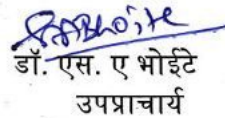 डॉ. एस. ए भोईटे
उपप्राचार्य